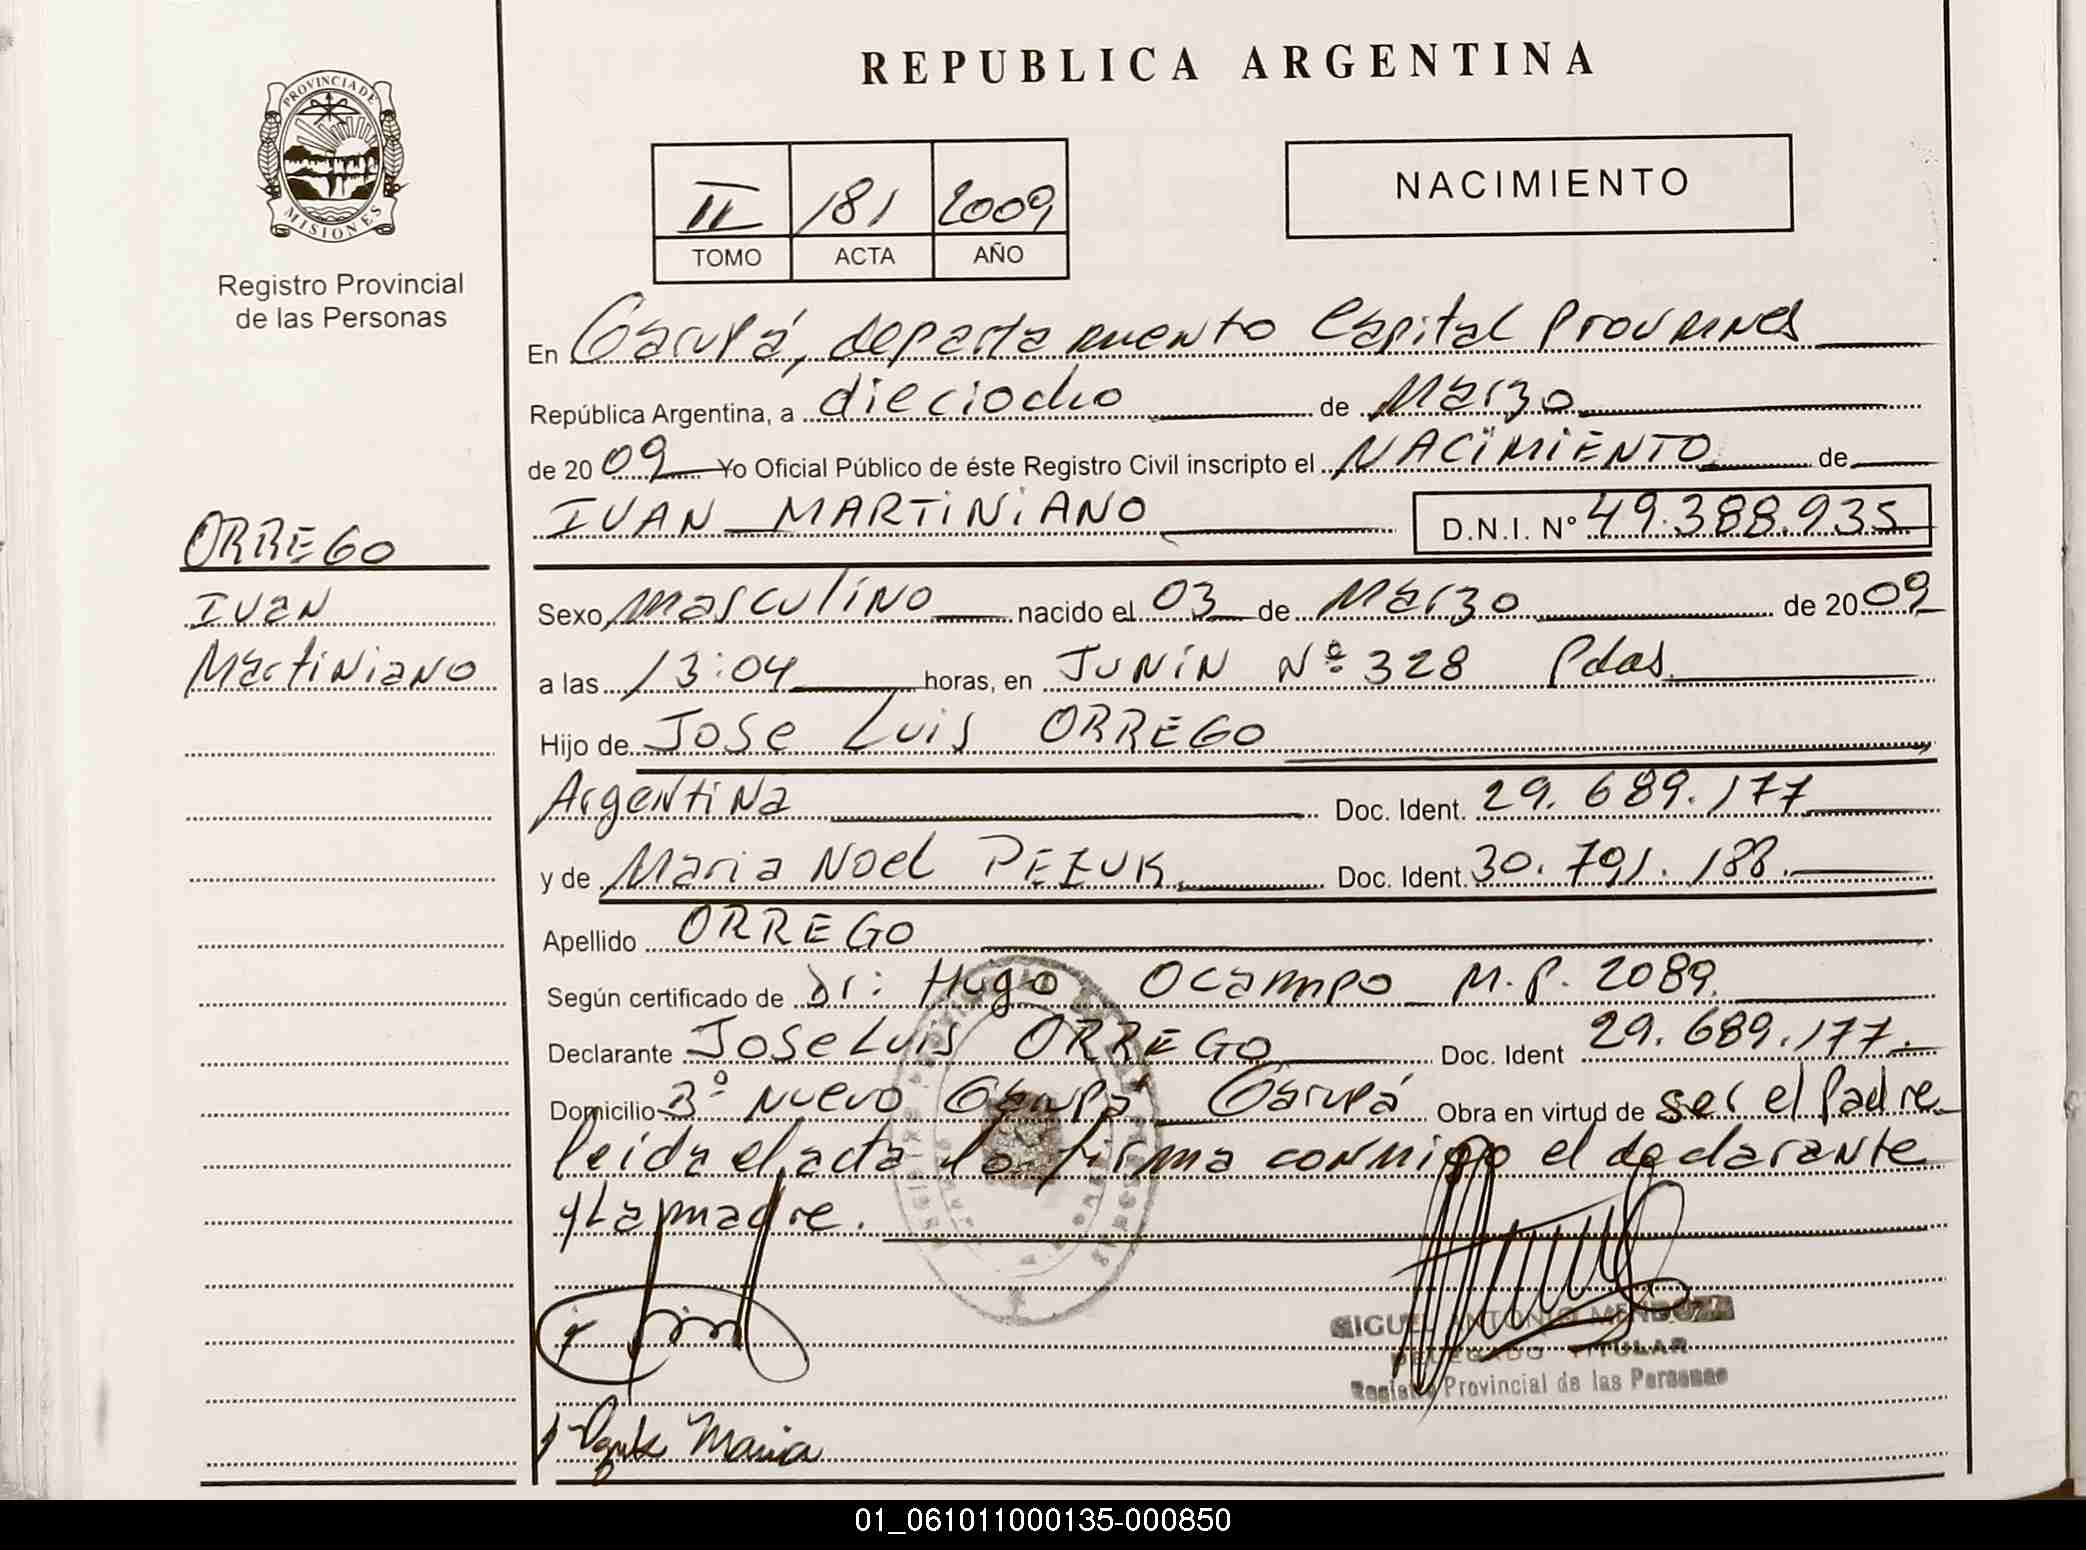 REPUBLICA ARGENTINA
PROVINCIA DE
MISIONES
Registro Provincial
de las Personas
II 181 2009
TOMO ACTA AÑO
NACIMIENTO
En Garupá, departamento Capital
República Argentina, a dieciocho de Marzo
de 2009 Yo Oficial Público de éste Registro Civil inscripto el NACIMIENTO de
IVAN MARTINIANO D.N.I. Nº 49.388.935
ORREGO
Ivan
Martiniano
Sexo masculino nacido el 03 de Marzo de 2009
a las 13:04 horas, en JUNIN Nº 328 Pdas.
Hijo de Jose Luis ORREGO
Argentina Doc. Ident. 29.689.177
y de Maria Noel PEZUK Doc. Ident. 30.791.188.
Apellido ORREGO
Según certificado de Dr: Hugo Ocampo M.P. 2089.
Declarante Jose Luis ORREGO Doc. Ident 29.689.177.
Domicilio Bº Nuevo Garupá Garupá Obra en virtud de ser el Padre
leida el acta la firma conmigo el declarante
y La madre.
MIGUEL ANTONIO MENDOZA
DELEGADO TITULAR
Registro Provincial de las Personas
Pezuk Maria
01_061011000135-000850